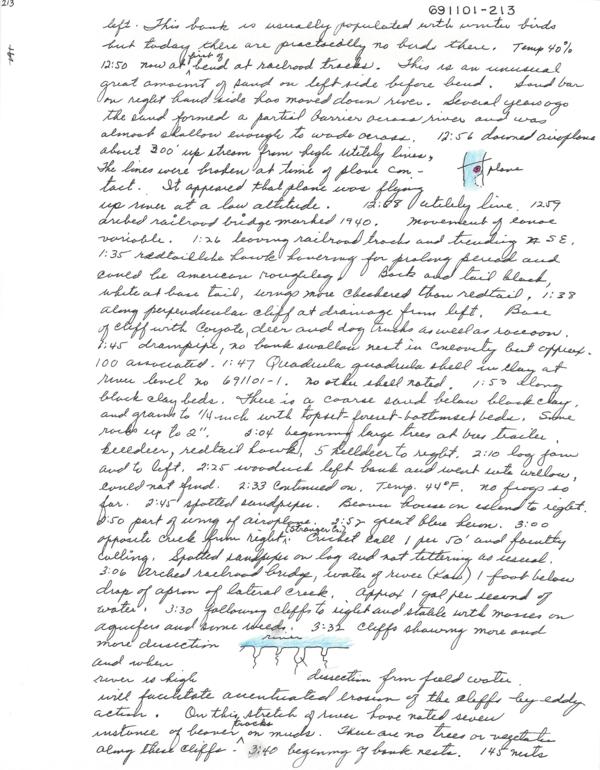 213
691101-213
left. This bank is usually populated with winter birds
but today there are practically no bird there. Temp 40°%
12:50 now at first of bend at railroad tracks. This is an unusual
great amount of sand on left side before bend. Sand bar
on right hand side has moved down river. Several years ago
the sand formed a partial barrier across river and was
almost shallow enough to wade across. 12:56 downed airoplane
about 300' up stream from high utility lines,
The lines were broken at time of plane con-
plane
tact. It appeared that plane was flying
up river at a low altitude. 12:58 utility line. 1259
arched railroad bridge marked 1940. Movement of canoe
variable. 1:26 leaving railroad tracks and trending SE.
1:35 redtaillike hawk hovering for prolong period and
could be american roughleg. Back and tail black,
white at base tail, wings more checkered than redtail. 1:38
along perpendicular cliff at drainage from left. Base
of cliff with Coyote, deer and dog tracks as well as raccoon.
1:45 drainpipe, no bank swallow nest in concavity but approx.
100 associated. 1:47 Quadrula quadrula shell in clay at
river level no 691101-1. No other shell noted. 1:53 Along
black clay beds. There is a coarse sand below black clay,
and grams to 1/4 inch with topset-foreset-bottomset beds. Some
rocks up to 2". 2:04 beginning large trees at bus trailer,
killdeer, redtail hawk, 5 killdeer to right. 2:10 log jam
and to left. 2:25 woodduck left bank and went into willow,
could not find. 2:33 Continued on. Temp. 44°F. no frogs so
far. 2:45 spotted sandpiper. Beaver house on island to right.
2:50 part of wing of airoplane. 2:52 great blue heron. 3:00
opposite creek from right. (Stranger Cr.) Cricket call 1 per 50' and faintly
calling. Spotted sandpiper on log and not tettering as usual.
3:06 Arched railroad bridge, water of river (Kaw) 1 foot below
drop of apron of lateral creek. Approx 1 gal per second of
water. 3:30 following cliffs to right and stable with mosses on
aquifers and some weeds. 3:32 Cliffs showing more and
more dissection
river
and when
river is high
dissection from field water.
will facilitate accentuated erosion of the cliffs by eddy
action. On this stretch of river have noted seven
instance of beaver tracks on muds. There are no trees or vegetation
along these cliffs. 3:40 beginning of bank nests. 145 nests